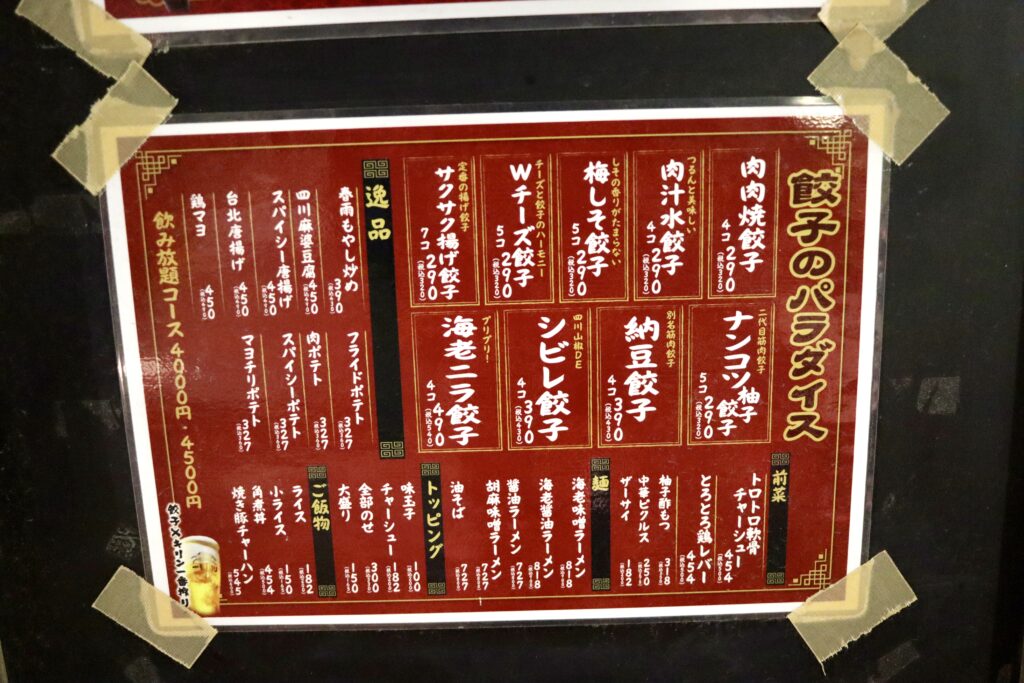 餃子のパラダイス
肉肉焼餃子
4コ 290
(税込320)
つるんと美味しい
肉汁水餃子
4コ 290
(税込320)
しその香りがたまらない
梅しそ餃子
5コ 290
(税込320)
チーズと餃子のハーモニー
Wチーズ餃子
5コ 290
(税込320)
定番の揚げ餃子
サクサク揚げ餃子
7コ 290
(税込320)
二代目筋肉餃子
ナンコツ柚子餃子
5コ 290
(税込320)
別名筋肉餃子
納豆餃子
4コ 390
(税込430)
四川山椒DE
シビレ餃子
4コ 390
(税込430)
プリプリ!
海老ニラ餃子
4コ 490
(税込540)
逸品
春雨もやし炒め 390
四川麻婆豆腐 450
スパイシー唐揚げ 450
台北唐揚げ 450
鶏マヨ 450
フライドポテト 327
肉ポテト 327
スパイシーポテト 327
マヨチリポテト 327
前菜
トロトロ軟骨チャーシュー 454
とろとろ鶏レバー 454
柚子酢もつ 318
中華ピクルス 250
ザーサイ 182
麺
海老味噌ラーメン 818
海老醤油ラーメン 818
醤油ラーメン 727
胡麻味噌ラーメン 727
油そば 727
トッピング
味玉子 100
チャーシュー 182
全部のせ 300
大盛り 150
ご飯物
ライス 182
小ライス 150
角煮丼 454
焼き豚チャーハン 545
飲み放題コース 4000円・4500円
餃子×キリン一番搾り